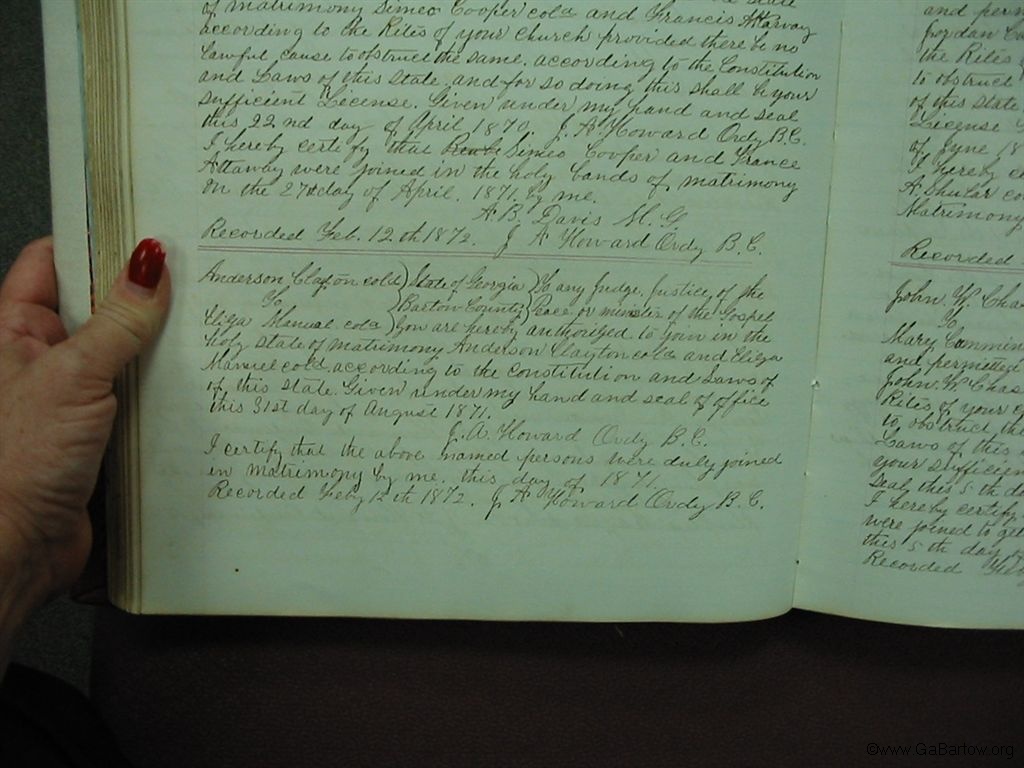 of matrimony Simeo Cooper cold and Francis Attaway
according to the Rites of your Church provided there be no
lawful cause to obstruct the same. according to the Constitution
and Laws of this State, and for so doing this shall be your
sufficient License. Given under my hand and seal
this 22nd day of April 1870. J. A Howard Ordy B.C.
I hereby certify that Simeo Cooper and France
Attaway were joined in the holy bands of matrimony
on the 27th day of April. 1871 by me.
A B. Davis M. G
Recorded Feb. 12th 1872. J A Howard Ordy B. C.
Anderson Clayton cold State of Georgia To any Judge, Justice of the
To Bartow County Peace or minister of the Gospel
Eliza Manual. cold You are hereby authorized to join in the
holy state of matrimony Anderson Clayton cold and Eliza
Manuel cold according to the constitution and Laws of
of this State. Given under my hand and seal of office
this 31st day of August 1871.
J. A. Howard Ordy B. C.
I certify that the above named persons were duly joined
in matrimony by me. this day of 1871.
Recorded Feby 12th 1872. J A Howard Ordy B. C.
and perm
Jordan
the Rites
to obstruct
of this State
License
of June 18
I hereby ce
A Shular
Matrimony
Recorded
John W. Chas
To
Mary Cummin
and permitted
John W Chas
Rites of your
to obstruct the
Laws of this
your sufficien
Seal this 5th da
I hereby certify
were joined to
this 5th day o
Recorded Feb
©www.GaBartow.org